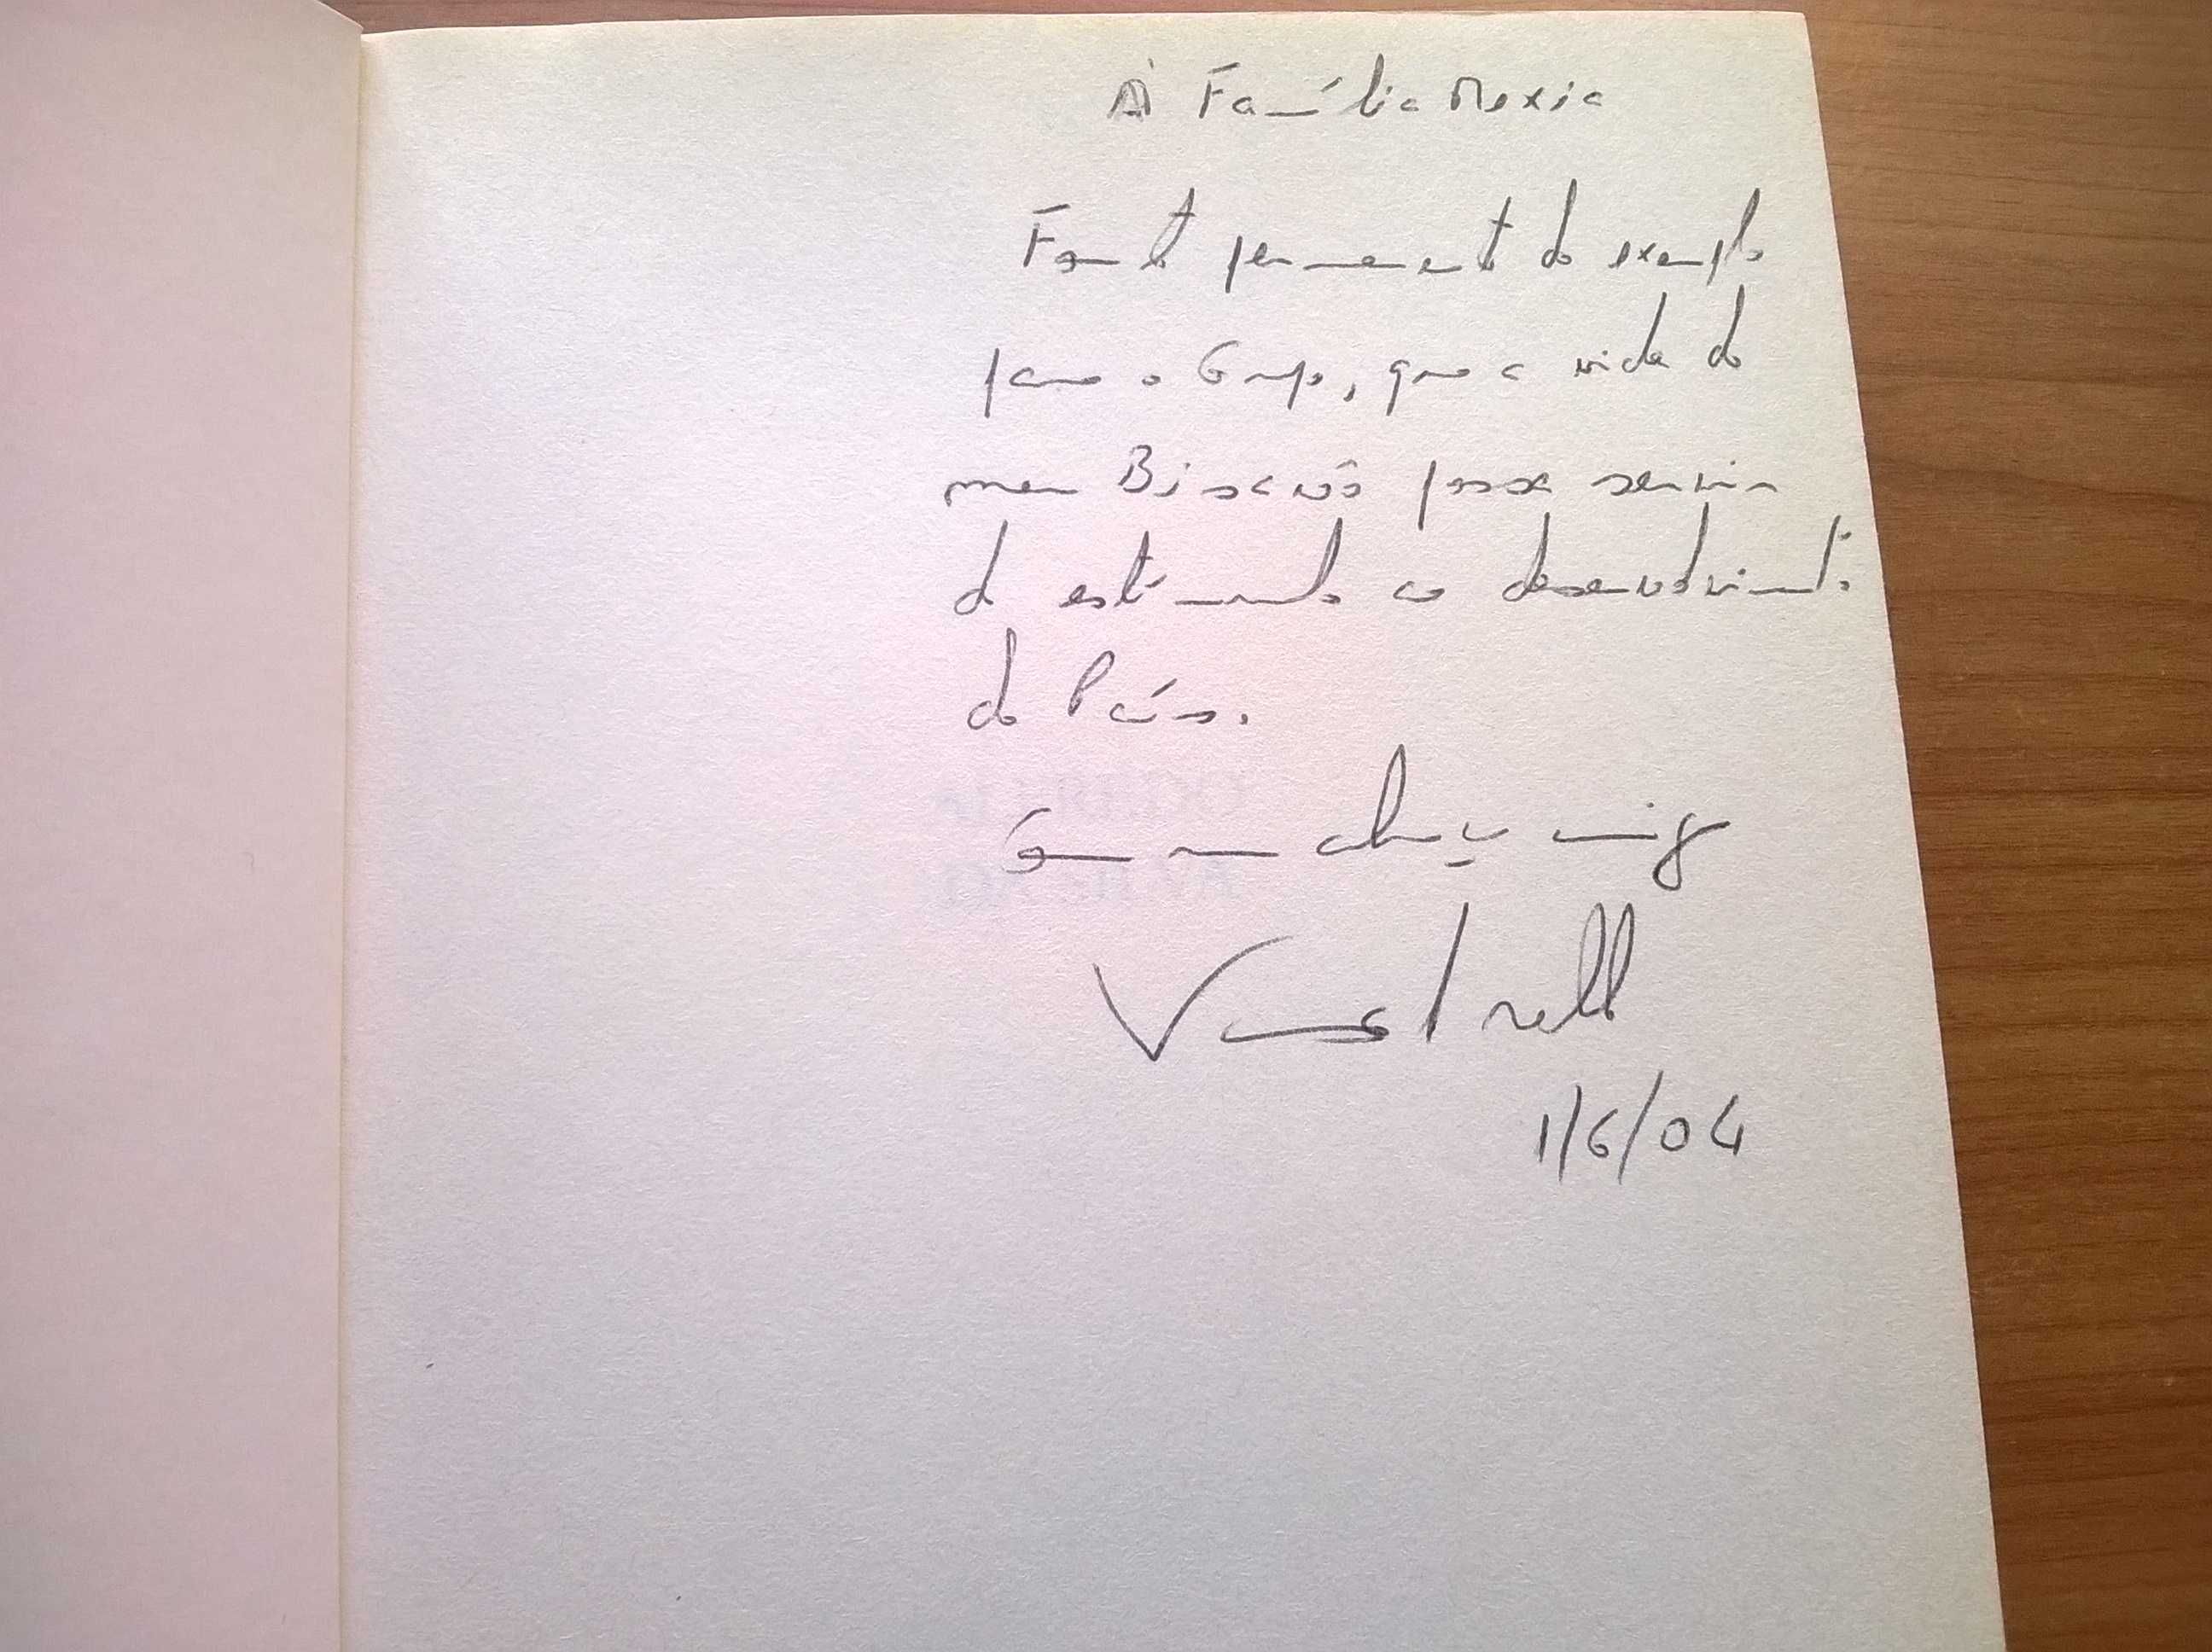 À Família Mexia
Fonte permanente de exemplo
para o Grupo, que a vida do
meu Bisavô possa servir
de estímulo ao desenvolvimento
do País.
Com um abraço amigo
Vasco de Mello
1/6/04